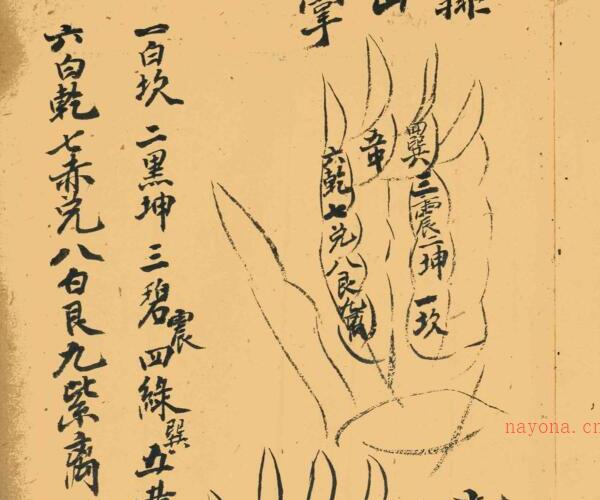 掌
一白坎 二黑坤 三碧震 四綠巽 五黃
六白乾 七赤兌 八白艮 九紫离
四巽 三震 二坤 一坎
五中
六乾 七兌 八艮 九離
nayona.cn